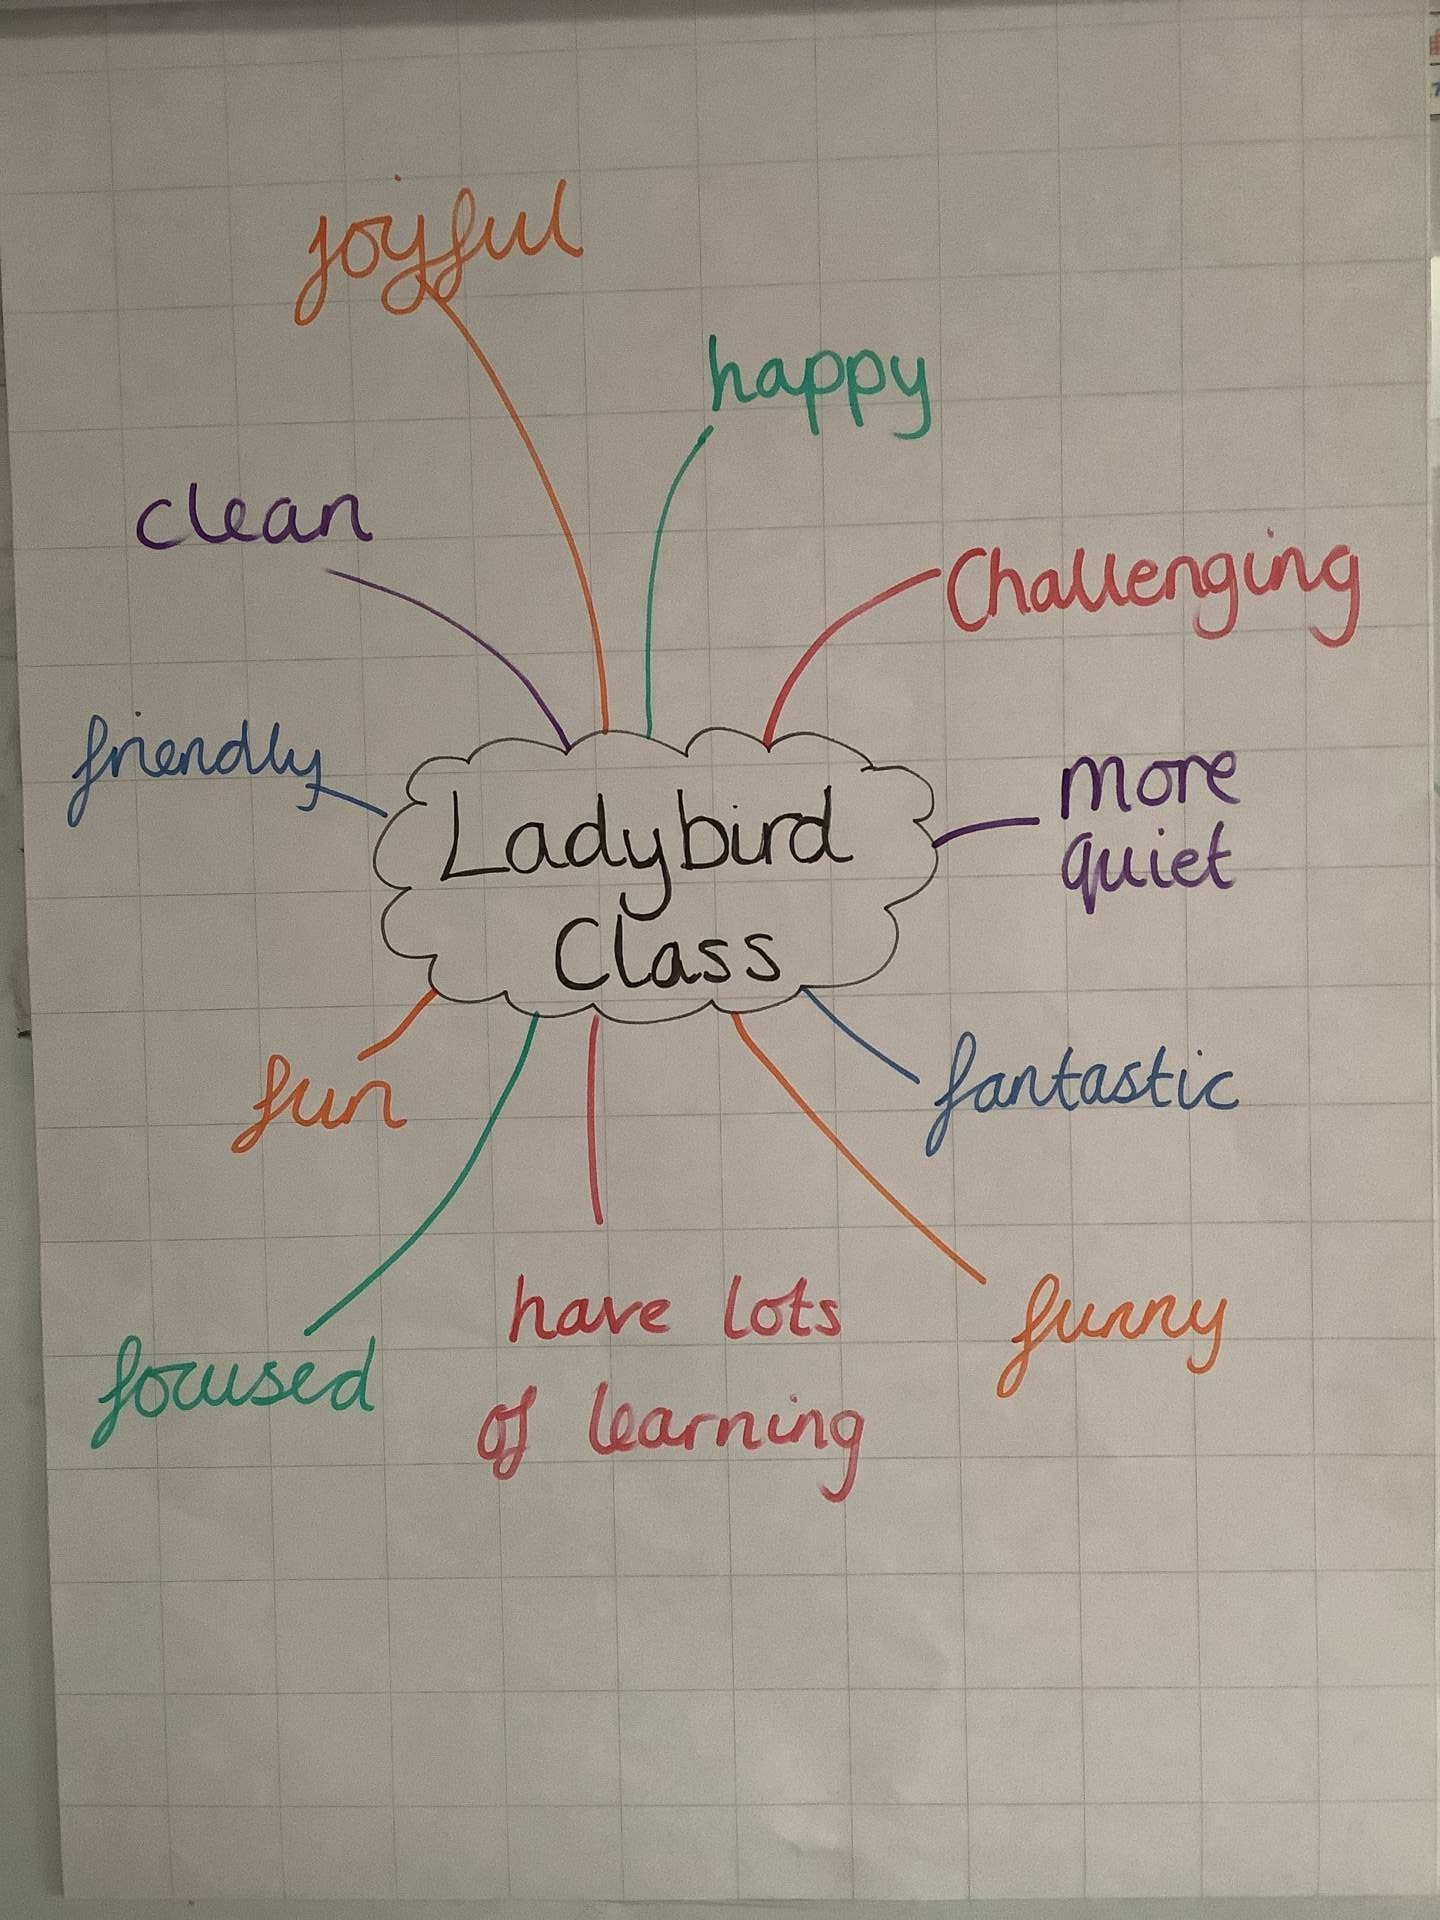 joyful
happy
clean
Challenging
friendly
more
quiet
Ladybird
Class
fun
fantastic
focused
have lots
of learning
funny